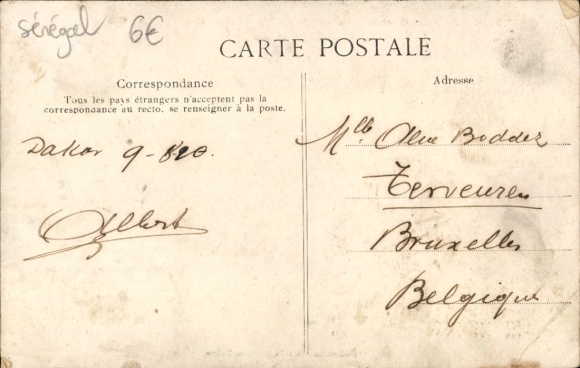 Sénégal 6€
CARTE POSTALE
Correspondance
Tous les pays étrangers n'acceptent pas la
correspondance au recto, se renseigner à la poste.
Dakar 9-
Albert
Adresse
Mlle
Tervueren
Bruxelles
Belgique